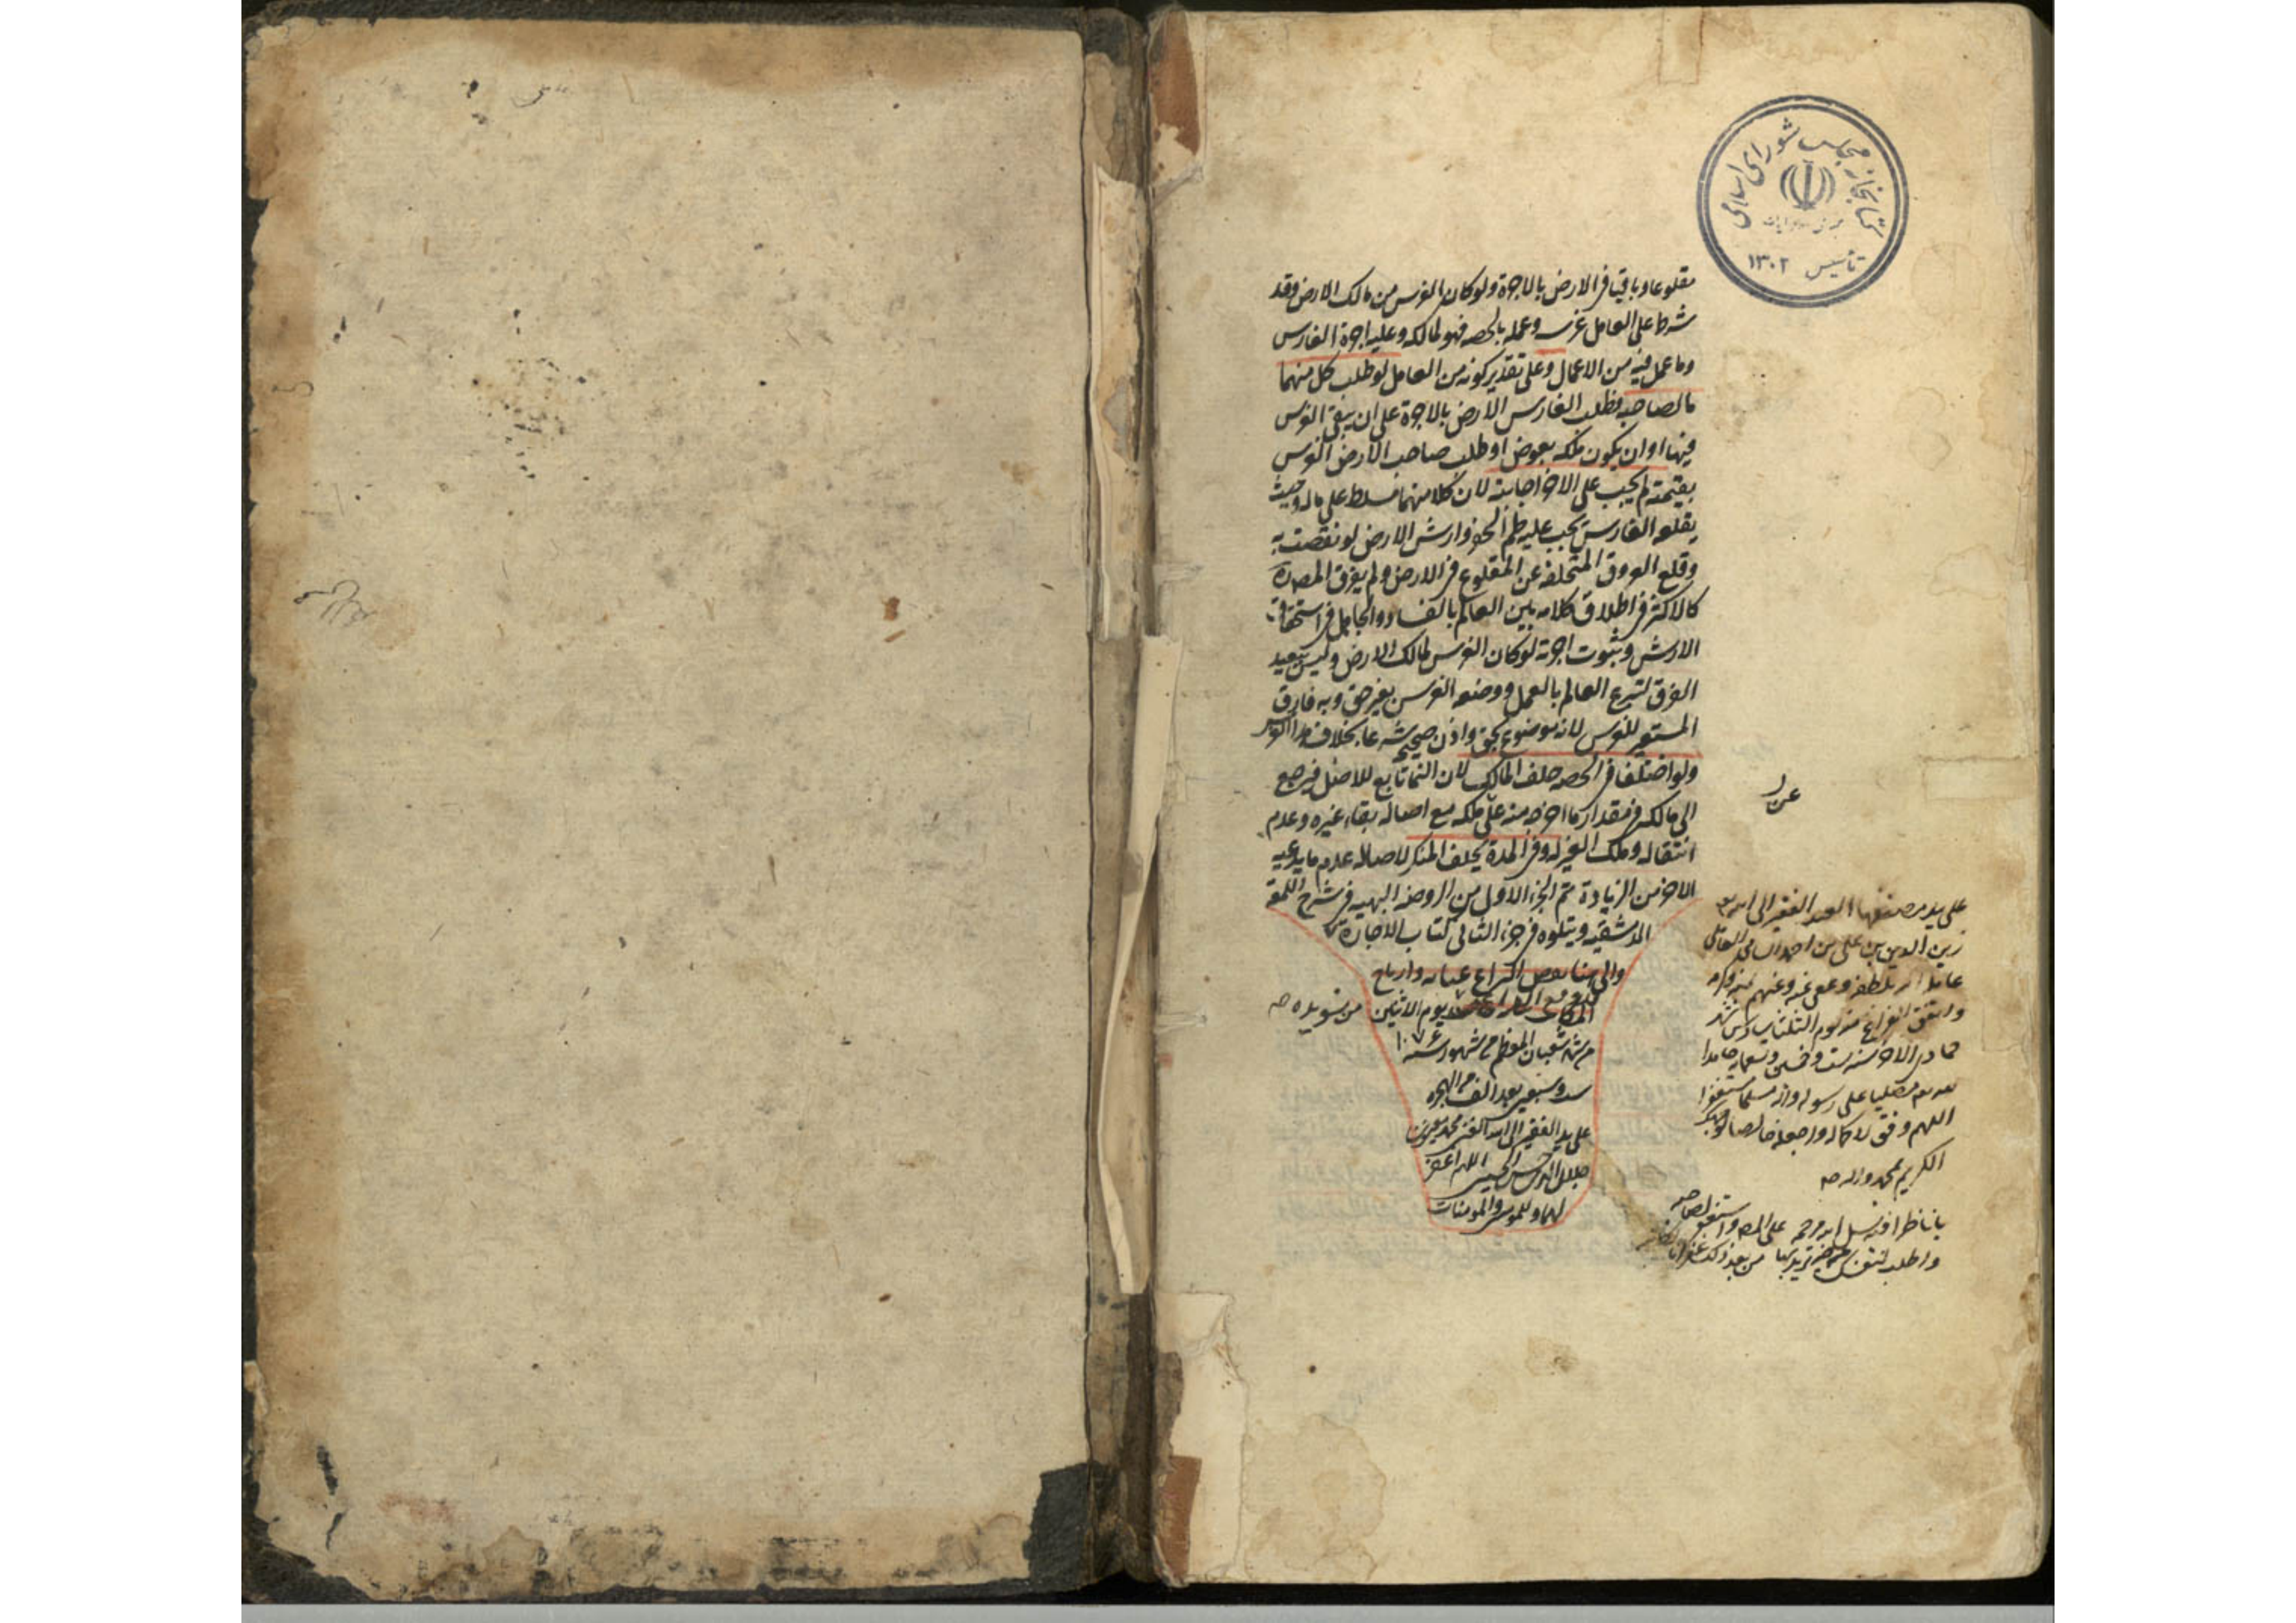 کتابخانه مجلس شورای اسلامی
تأسیس ۱۳۰۲
مقلوعا وباقيا في الارض بالاجرة ولو كان الغرس من مالك الارض وقد
شرط على العامل غرسه وعمله بالحصه فهو لمالكه وعليه اجرة الغارس
وما عمل فيه من الاعمال وعلى تقدير كونه من العامل لو طلب كل منهما
ما لصاحبه فطلب الغارس الارض بالاجرة على ان يبقى الغرس
فيها او ان يكون ملكه بعوض او طلب صاحب الارض الغرس
بقيمته لم يجب على الاخر اجابته لان كلا منهما مسلط على ماله وحيث
يقلعه الغارس يجب عليه طم الحفر وارش الارض لو نقصت به
وقلع العروق المتخلفه عن المقلوع في الارض ولم يفرق المص ره
كالاكثر في اطلاق كلامه بين العالم بالفساد والجاهل في استحقاق
الارش وثبوت اجرته لو كان الغرس لمالك الارض وليس ببعيد
الفرق لتبرع العالم بالعمل ووضعه الغرس بغير حق وبه فارق
المستعير للغرس لانه موضوع بحق واذن صحيحه شرعا بخلاف هذا الغرس
ولو اختلفا في الحصه حلف المالك لان النما تابع للاصل فيرجع
الى مالكه في مقدار ما اخرجه منه على ملكه مع اصاله بقاء غيره وعدم
انتقاله وملك الغير له وفي المدة يحلف المنكر لاصاله عدم ما يدعيه
الاخر من الزيادة تم الجزء الاول من الروضه البهيه في شرح اللمعة
الدمشقيه ويتلوه في جزء الثاني كتاب الاجارة
يوم الاثنين
من شهر شعبان المعظم من شهور سنه ١٠٧٦
ست وسبعين بعد الالف من الهجره
على يد الفقير الى الله الغني محمد
جلال الدين الحسيني اللهم اغفر
لهما وللمؤمنين والمومنات
من تسويده ص
على يد مصنفها العبد الفقير الى الله تعالى
زين الدين بن علي بن احمد الشامي العاملي
عامله الله بلطفه وعفى عنه وعنهم بمنه وكرمه
واتفق الفراغ منه يوم الثلثا سادس شهر
جمادى الاخر سنه ست وخمسين وتسعمايه حامدا
لله تعالى مصليا على رسوله واله مسلما مستغفرا
اللهم وفق لاكماله واجعله خالصا لوجهك
الكريم بمحمد واله ص
يا ناظرا فيه سل الله مرحمه على المص واستغفر لصاحبه
واطلب لنفسك من خير تريد بها من بعد ذلك غفرانا لكاتبه